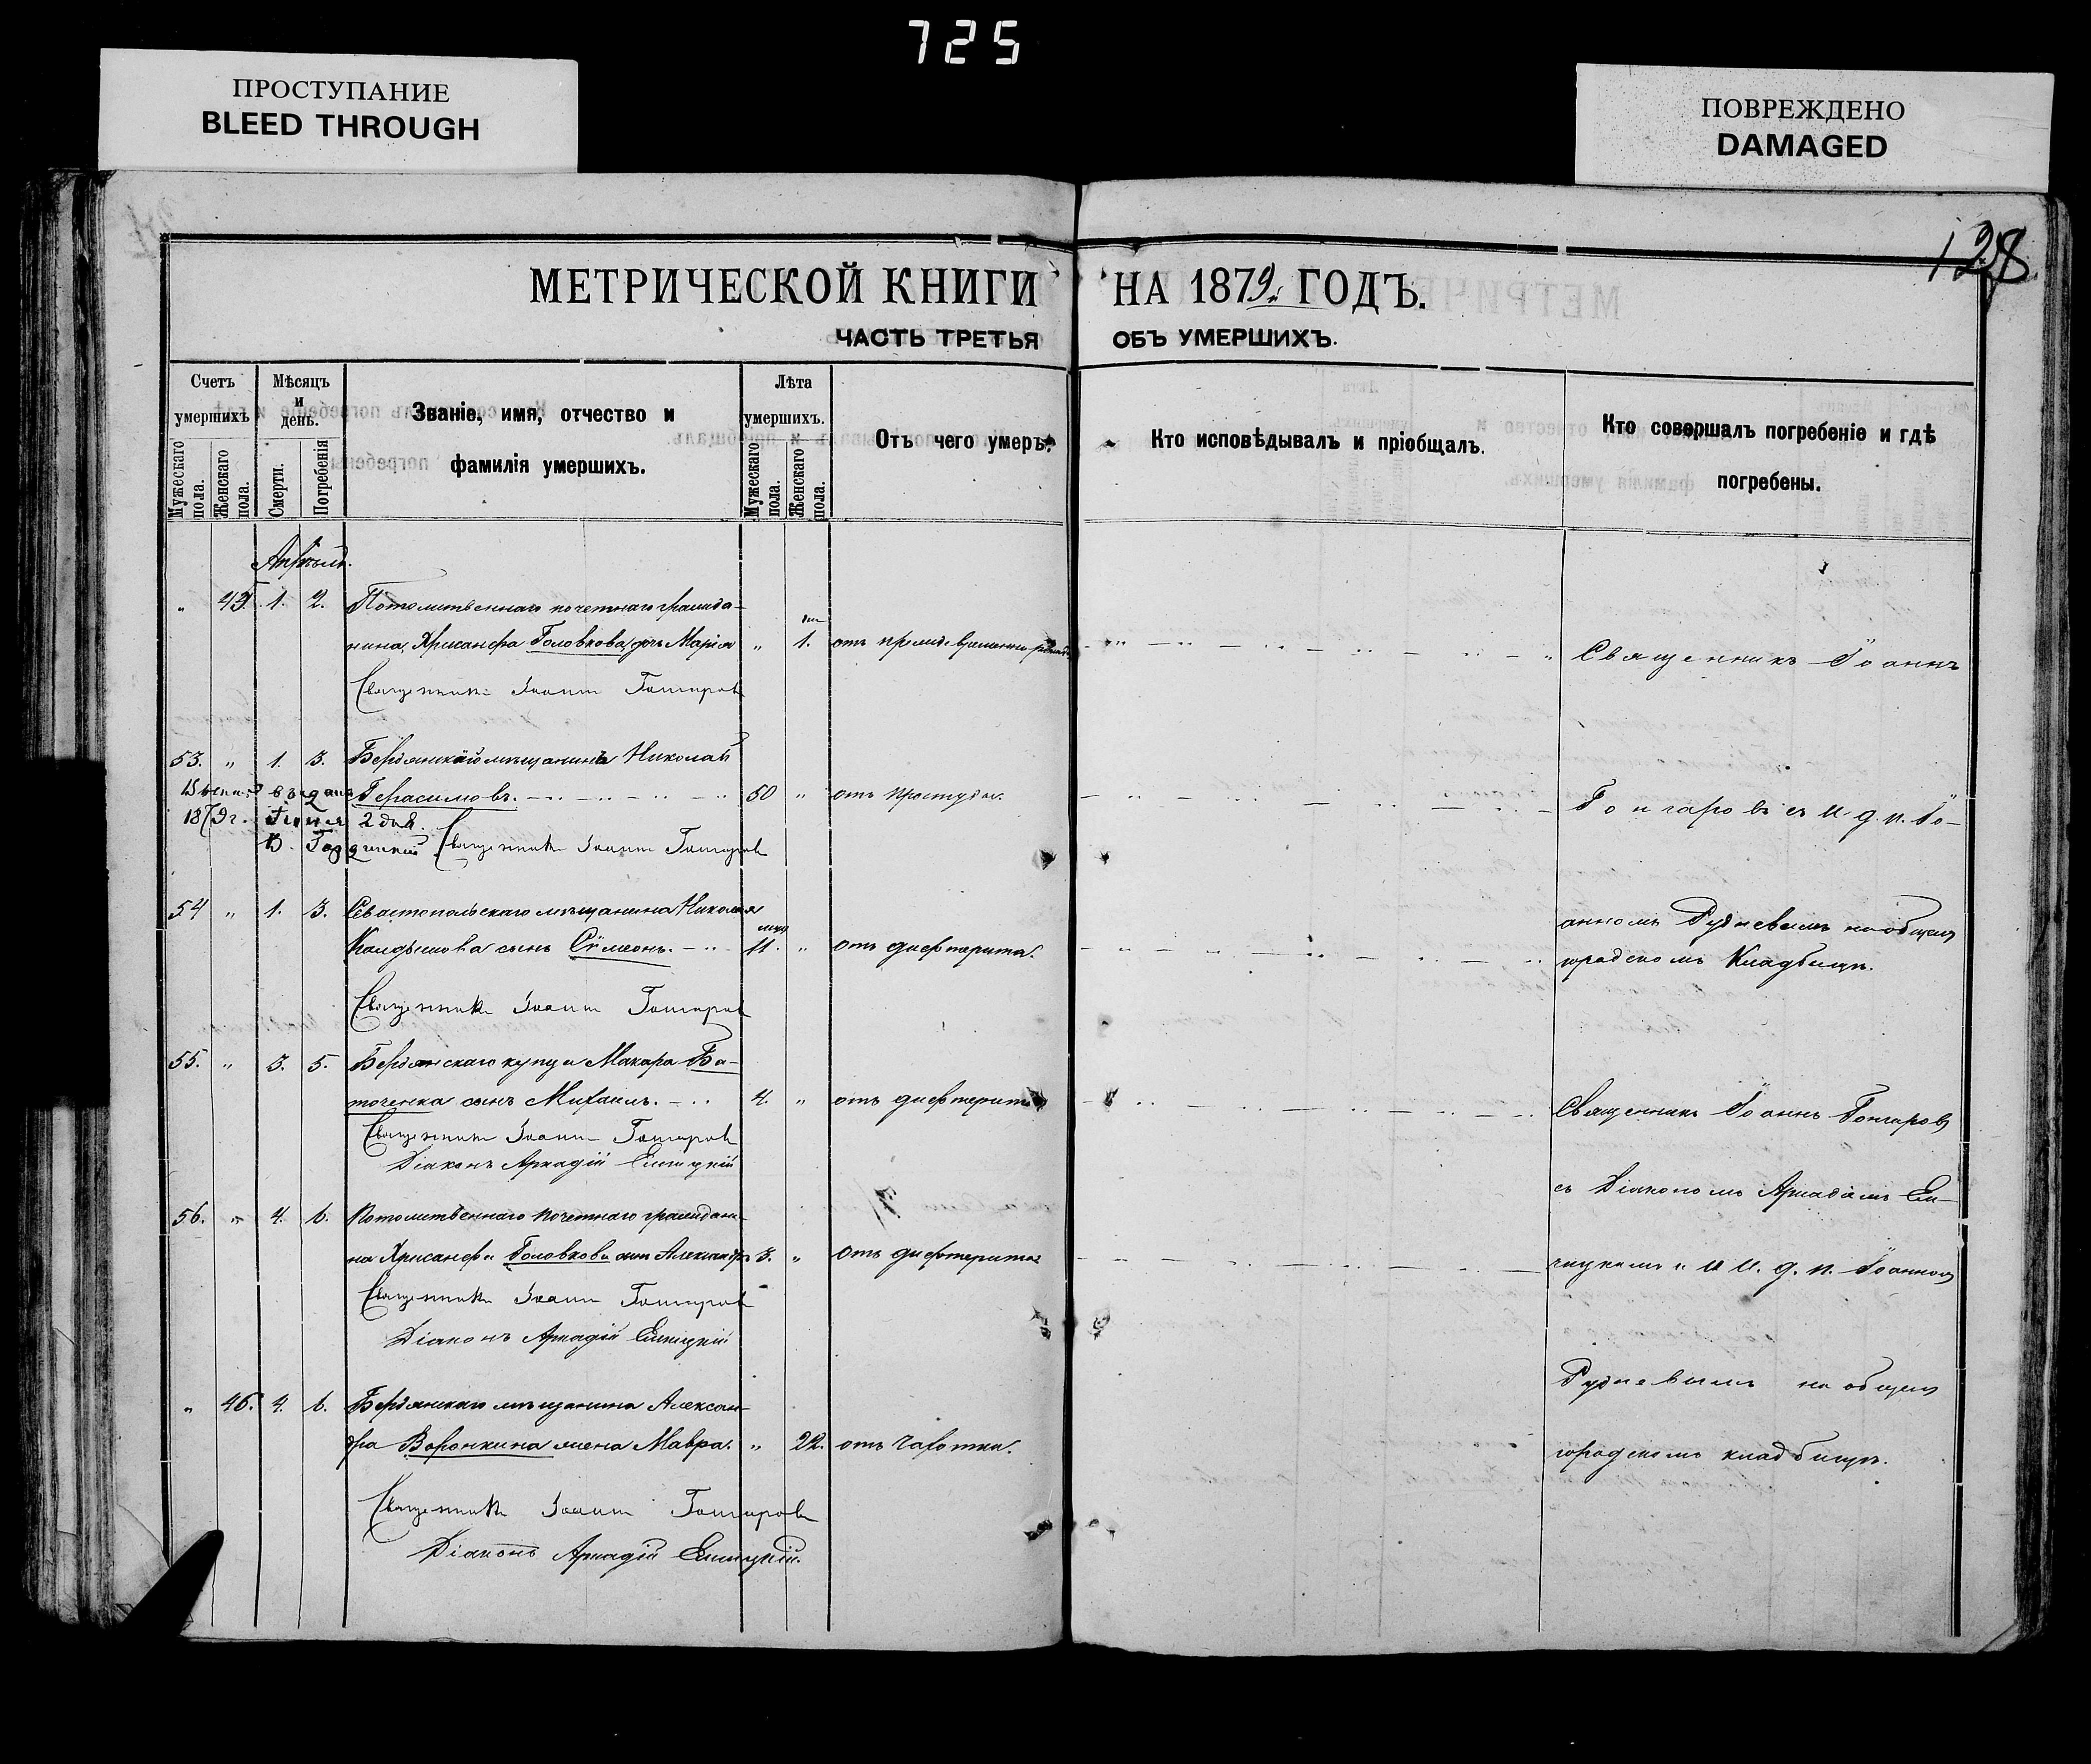 725
ПРОСТУПАНИЕ
BLEED THROUGH
ПОВРЕЖДЕНО
DAMAGED
128
МЕТРИЧЕСКОЙ КНИГИ НА 1879 ГОДЪ.
ЧАСТЬ ТРЕТЬЯ ОБЪ УМЕРШИХЪ.
Счетъ умершихъ
Мужескаго пола.
Женскаго пола.
Мѣсяцъ и день.
Смерти.
Погребенія
Званіе, имя, отчество и
фамилія умершихъ.
Лѣта умершихъ.
Мужескаго пола.
Женскаго пола.
Отъ чего умеръ.
Кто исповѣдывалъ и пріобщалъ.
Кто совершалъ погребеніе и гдѣ
погребены.
Апрѣль.
" 45. 1. 2. Потомственнаго почетнаго гражда-
нина, Хрисанфа Головкова, дочь Марія " 1. отъ преждевременн
Священникъ Іоаннъ
Священникъ Іоаннъ Гончаровъ
53. " 1. 3. Бердянскій мѣщанинъ Николай
Герасимовъ. 50 " отъ простуды.
Гончаровъ съ и. д. п. Іо-
1879 г. Іюня 2 дня.
Священникъ Іоаннъ Гончаровъ
54 " 1. 3. Севастопольскаго мѣщанина Николая
сынъ Сѵмеонъ. 11. " отъ дифтерита.
анномъ Рудневымъ на общемъ
городскомъ Кладбищѣ.
Священникъ Іоаннъ Гончаровъ
55. " 3. 5. Бердянскаго купца Макара Ба-
точенка сынъ Михаилъ. 4. " отъ дифтерита
Священникъ Іоаннъ Гончаровъ
Священникъ Іоаннъ Гончаровъ
Діаконъ Аркадій
съ Діакономъ Аркадіемъ
56. " 4. 6. Потомственнаго почетнаго граждани-
на Хрисанфа Головкова сынъ Александръ 3. " отъ дифтерита
и И. д. п. Іоанномъ
Священникъ Іоаннъ Гончаровъ
Діаконъ Аркадій
Рудневымъ на общемъ
" 46. 4. 6. Бердянскаго мѣщанина Алексан-
дра Воронкина жена Мавра. " 22. отъ чахотки.
городскомъ кладбищѣ.
Священникъ Іоаннъ Гончаровъ
Діаконъ Аркадій